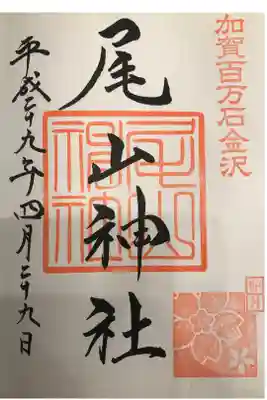 加賀百万石金沢
尾山神社
平成二十九年四月二十九日